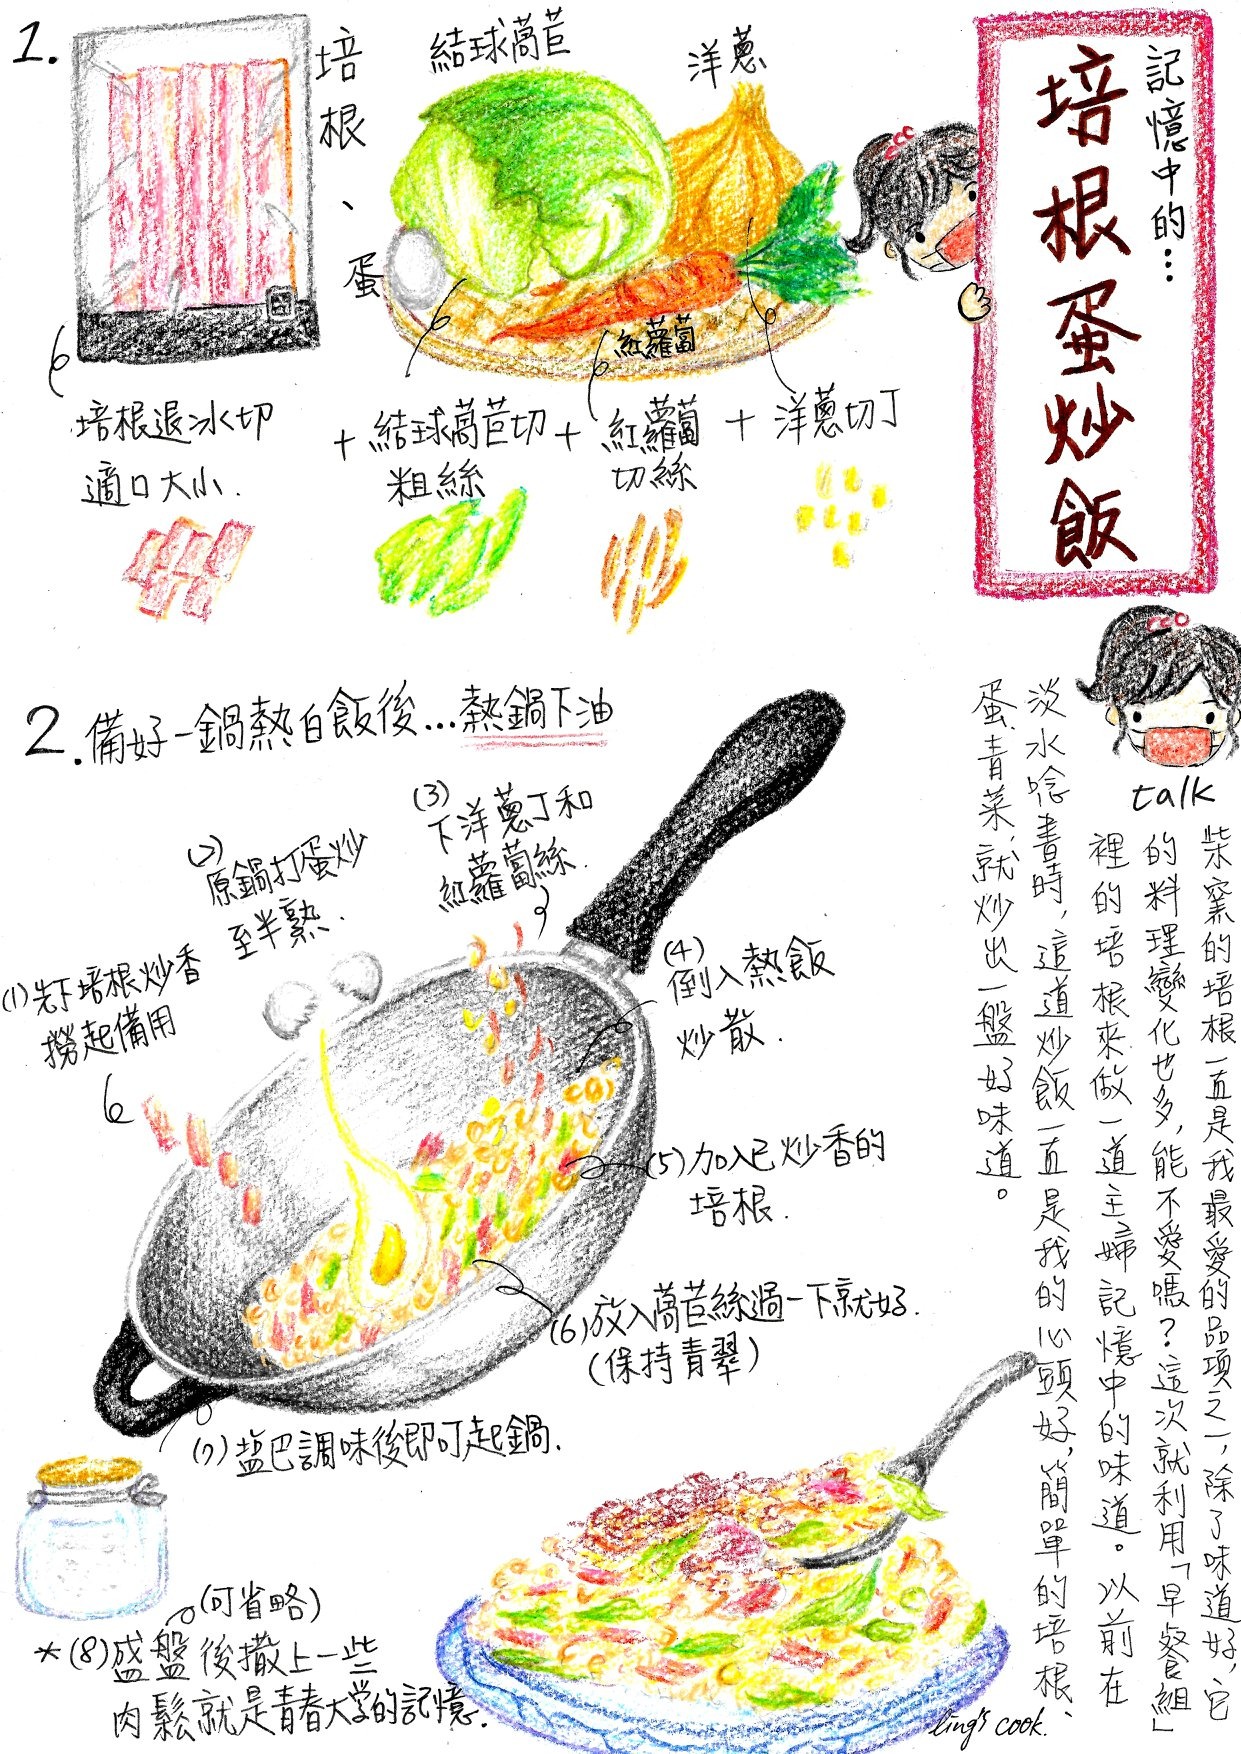 記憶中的...
培根蛋炒飯
1.
培根、蛋
結球萵苣
洋蔥
紅蘿蔔
培根退冰切
適口大小.
+ 結球萵苣切
粗絲
+ 紅蘿蔔
切絲
+ 洋蔥切丁
2. 備好一鍋熱白飯後...熱鍋下油
(1)先下培根炒香
撈起備用
(2)
原鍋打蛋炒
至半熟.
(3)
下洋蔥丁和
紅蘿蔔絲.
(4)
倒入熱飯
炒散.
(5)加入已炒香的
培根.
(6)放入萵苣絲過一下就好.
(保持青翠)
(7)塩巴調味後即可起鍋.
(可省略)
*(8)盛盤後撒上一些
肉鬆就是青春大学的記憶.
talk
柴窯的培根一直是我最愛的品項之一,除了味道好,它
的料理變化也多,能不愛嗎?這次就利用「早餐組」
裡的培根來做一道主婦記憶中的味道。以前在
淡水唸書時,這道炒飯一直是我的心頭好,簡單的培根、
蛋、青菜,就炒出一盤好味道。
ling's cook.